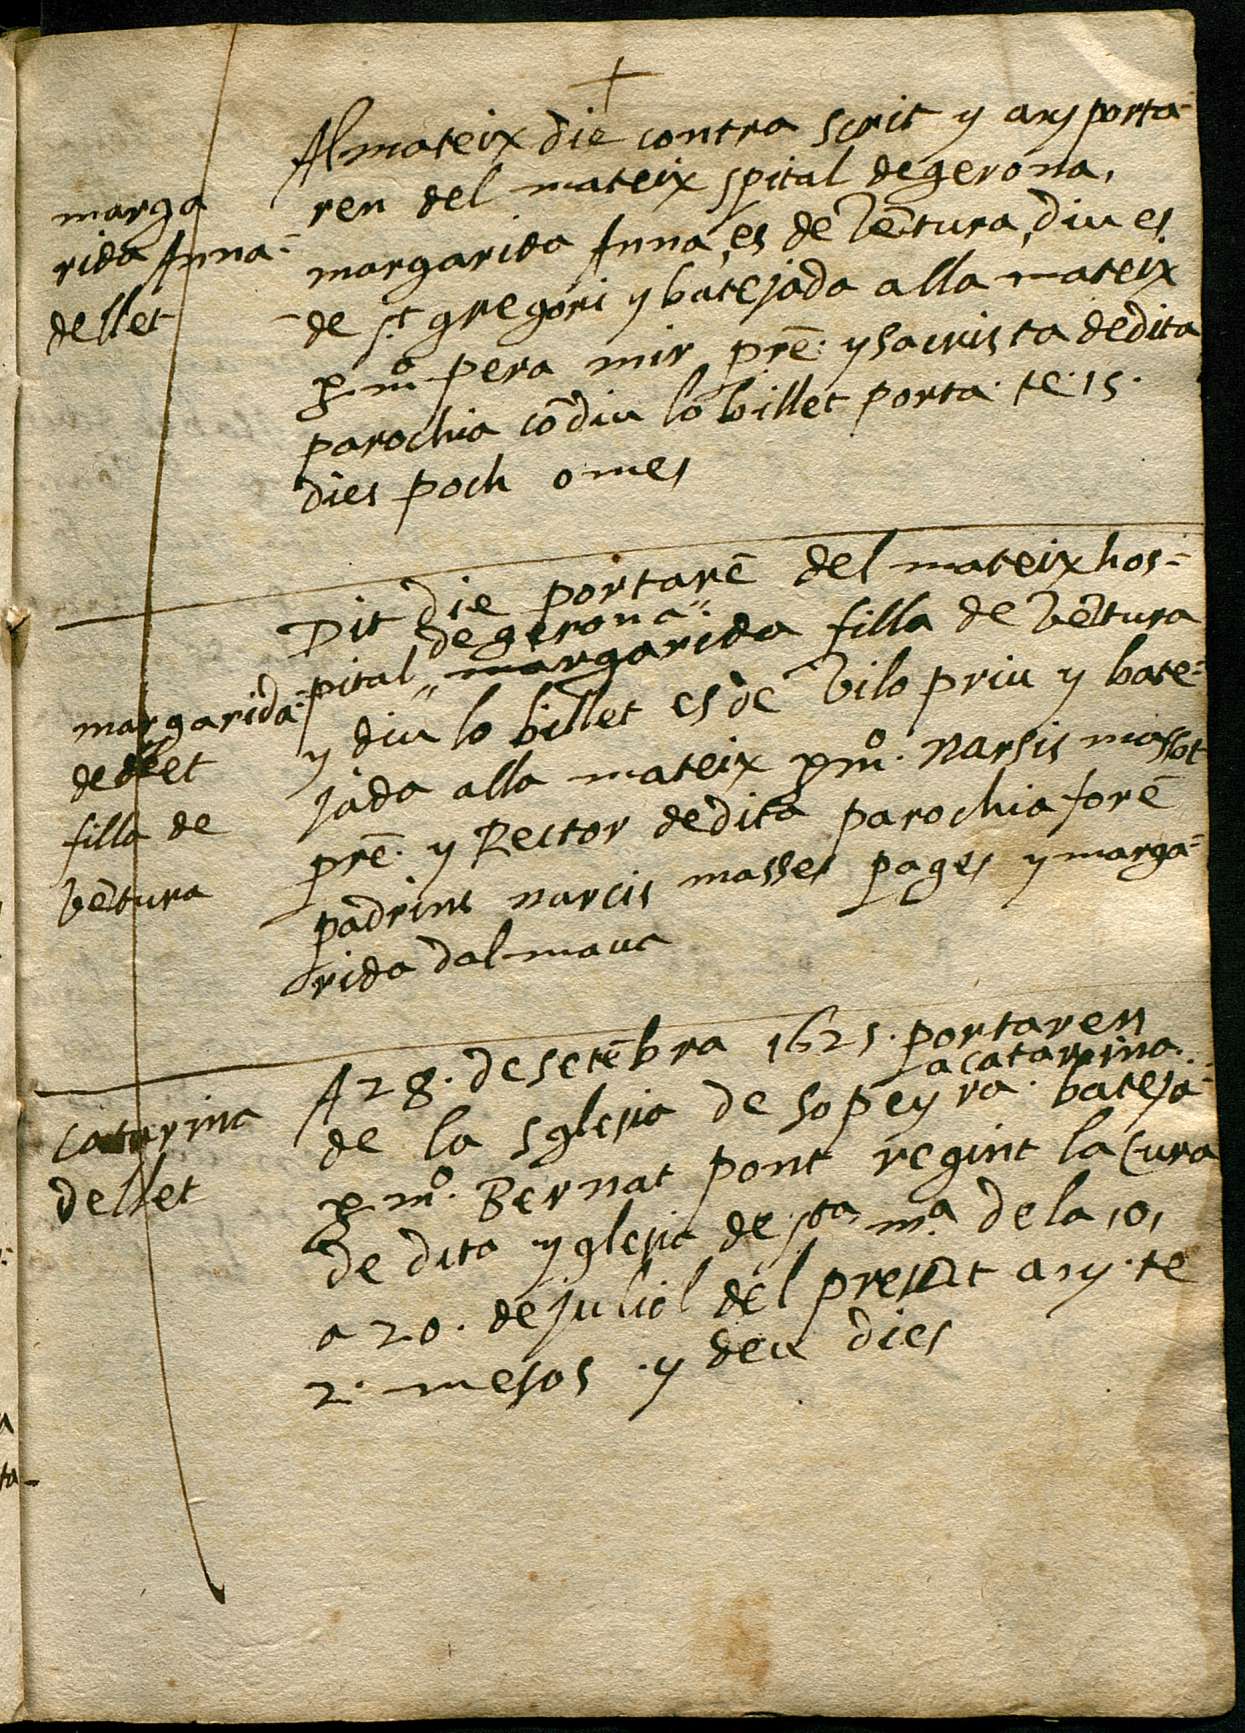 +
Al mateix die contra scrit y any porta-
ren del mateix spital de gerona,
marga
rida Anna-
de llet
margarida Anna es de vētura diu es
de st gregori y batejada alla mateix
p mº pera mir prē. y sacrista de dita
parochia cō diu lo billet porta. te. 15.
dies poch o mes
Dit die portarē del mateix hos-
de gerona
pital margarida filla de vētura
margarida-
de llet
filla de
vētura
y diu lo billet es de vilopriu y bate-
jada alla mateix p mº. Narsis massot
prē. y Rector de dita parochia forē
padrins narcis masses pages y marga-
rida dalmaua
A 28. de setēbra 1625. portaren
a catarina.
caterina
de llet
de la sglesia de sopeyra. bateja-
p mº. Bernat pont regint la Cura
de dita yglesia de sta mª de la o,
a 20. de juliol del present any. te
2. mesos. y deu dies